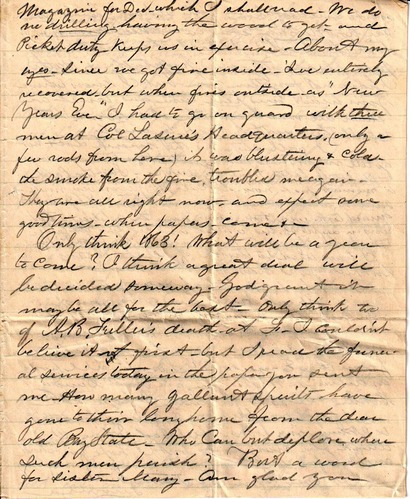 Magazine for Dec. which I shall read - We do
no drilling having the wood to get - and
Picket duty keeps us in exercise - About my
eyes - Since we got fire inside - I've entirely
recovered, but when fires outside - as "New
Years Eve" I had to go on guard with three
men at Col Headquarters, (only a
few rods from here) it was blustering & cold
the smoke from the fire, troubled me again -
They are all right now - and expect some
good times - when papers - come & -
Only think 1863! What will be a year
to come? I think a great deal will
be decided someway - God grant it
may be all for the best - Only think too
of A.B. Fuller's death at F - I couldn't
believe it at first - but I read the funer-
al services today in the paper you sent
me - How many gallant spirits have
gone to their long home from the dear
old Bay State - Who can but deplore where
such men perish? But a word
for sister Mary - Am glad you